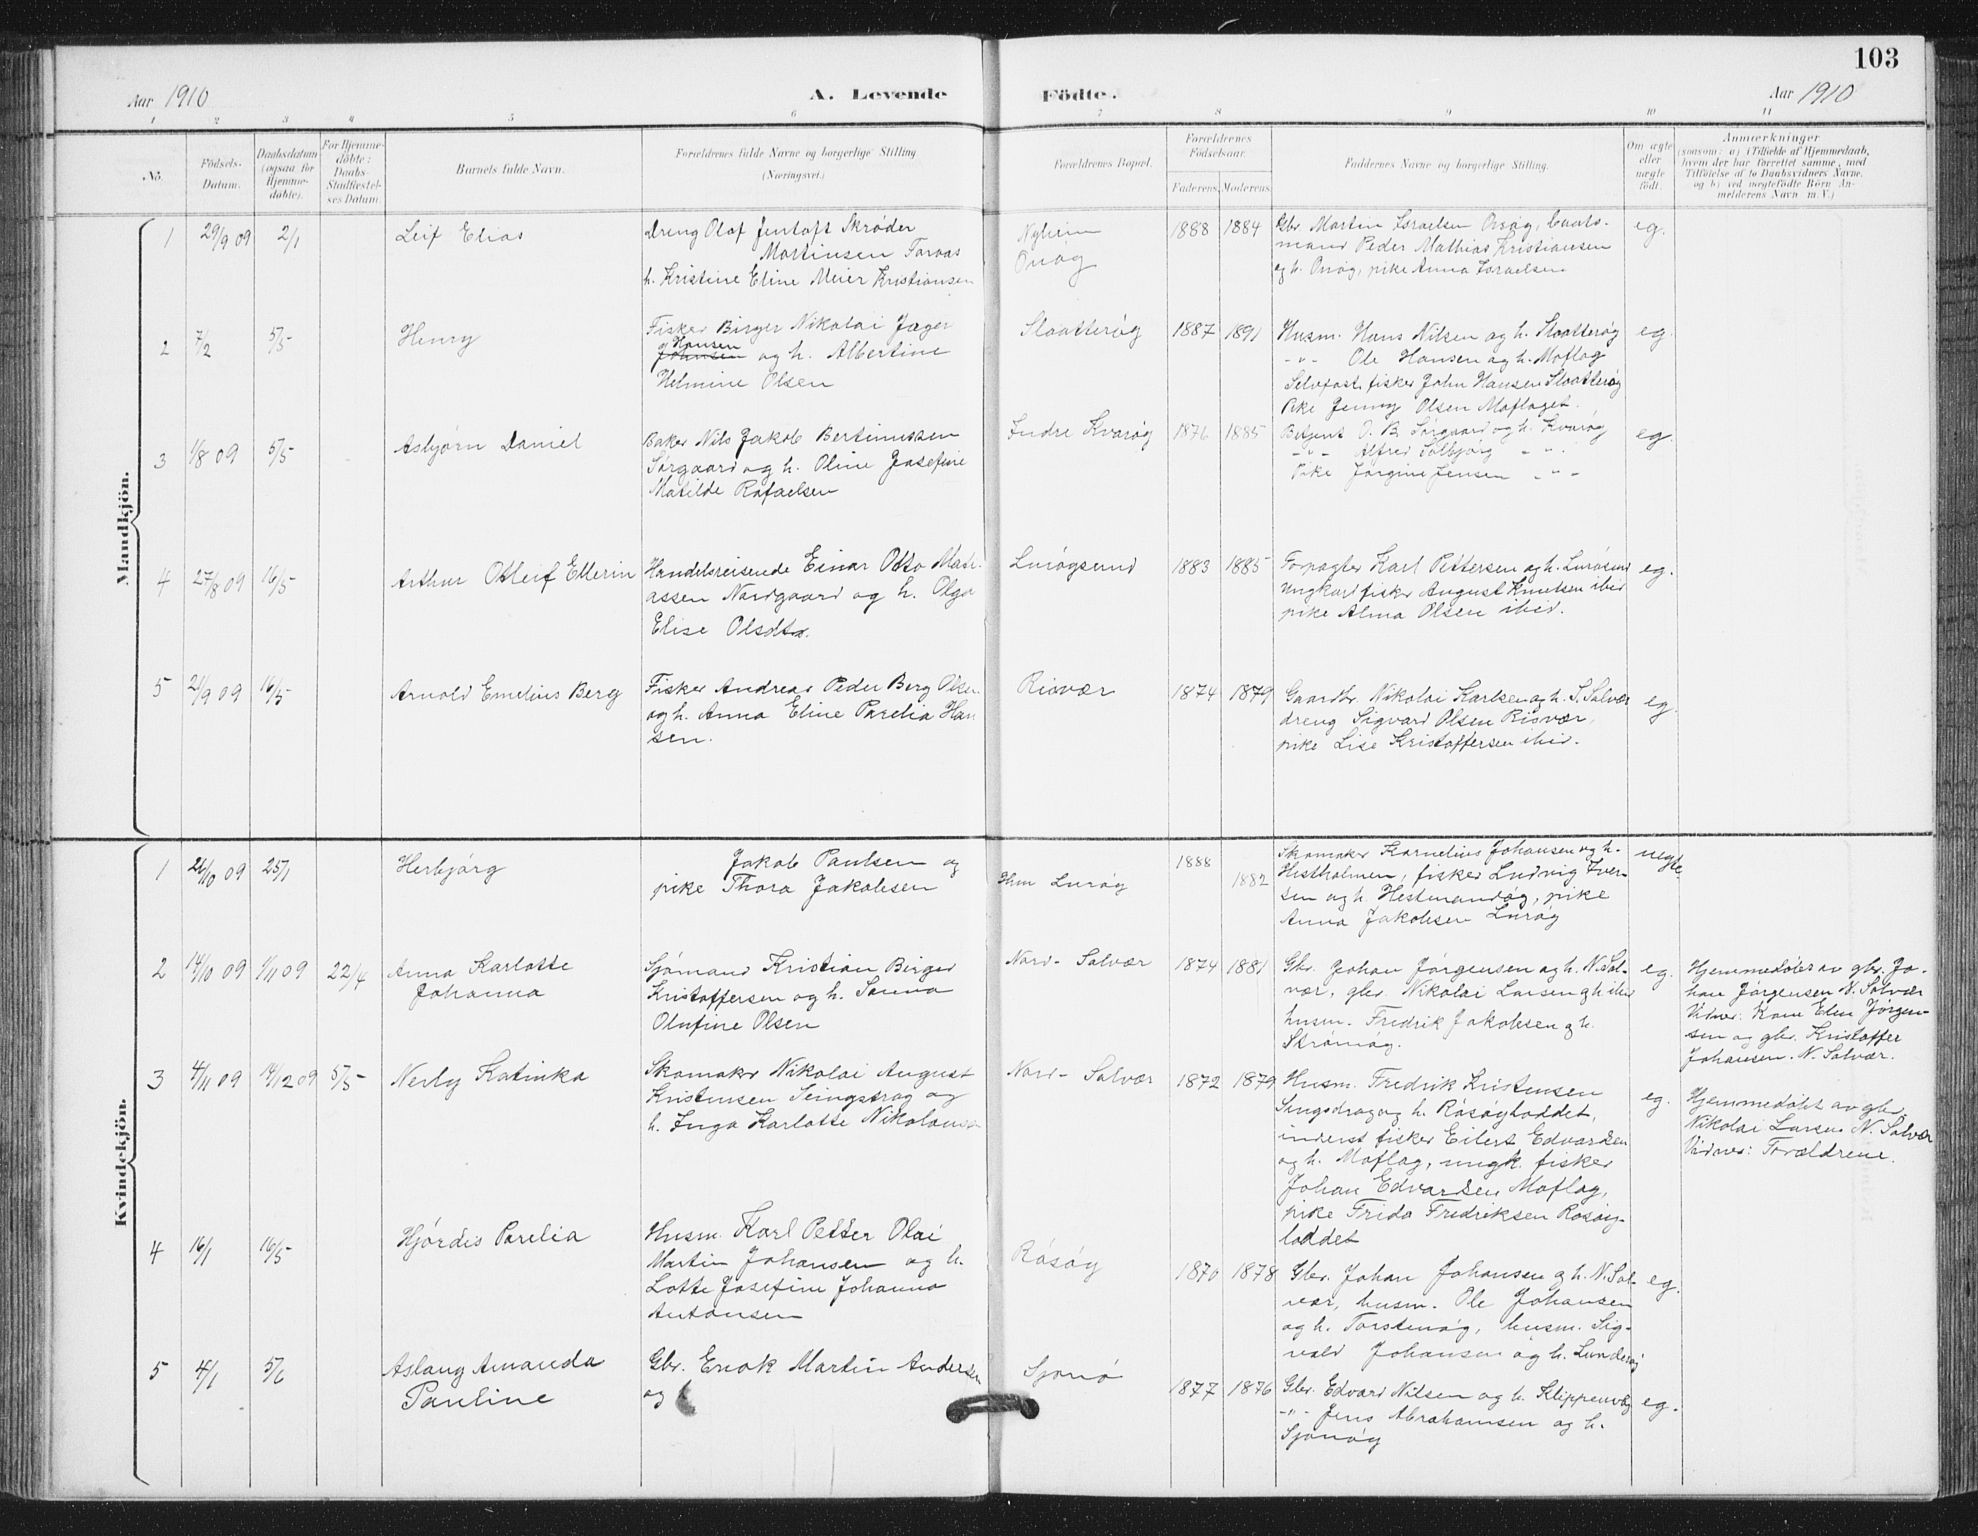 103
Aar 1910
A. Levende
Födte.
Aar 1910
1 2 3 4 5 6 7 8 9 10 11
No.
Födsels-
Datum.
Daabsdatum
(ogsaa for
Hjemme-
döbte).
For Hjemme-
döbte:
Daabs-
Stadfæstel-
ses Datum.
Barnets fulde Navn.
Forældrenes fulde Navne og borgerlige Stilling
(Næringsvei.)
Forældrenes Bopæl.
Forældrenes
Födselsaar.
Faderens.
Moderens.
Faddernes Navne og borgerlige Stilling.
Om ægte
eller
uægte
födt.
Anmærkninger
(saasom: a) i Tilfælde af Hjemmedaab,
hvem der har forrettet samme, med
Tilföielse af to Daabsvidners Navne,
og b) ved uægtefödte Börn An-
melderens Navn m. V.)
Mandkjön.
1 29/9 09 2/1
Leif Elias
Dreng Olaf Jentoft Skrøder
Martinsen Foraas
h. Kristine Eline Meier Kristiansen
Nyheim
Onøg
1888 1884
Gbr. Martin Israelsen Onøg, baats-
mand Peder Mathias Kristiansen
og h. Onøg, pike Anna Israelsen
eg.
2 7/2 5/5
Henry
Fisker Birger Nikolai Jæger
Hansen
Johansen og h. Albertine
Helmine Olsen
Slaatterøg
1887 1891
Husm. Hans Nilsen og h. Slaatterøg
-"- Ole Hansen og h. Moflag
Selvfost. fisker John Hansen Slaatterøg
Pike Jenny Olsen Moflaget.
eg.
3 1/8 09 5/5
Asbjørn Daniel
Baker Nils Jakob Bertinussen
Sørgaard og h. Oline Josefine
Matilde Rafaelsen
Indre Kvarøg
1876 1885
Betjent O. B. Sørgaard og h. Kvarøg
-"- Alfred Solbjørg -"-
Pike Jørgine Jensen -"-
eg.
4 27/8 09 16/5
Arthur Otleif Ellerin
Handelsreisende Einar Otto Mati-
assen Nordgaard og h. Olga
Elise Olsdtr.
Lurøgsund
1883 1885
Forpagter Karl Pettersen og h. Lurøsund
ungkarl fisker August Knutsen ibid
pike Alma Olsen ibid.
eg.
5 21/9 09 16/5
Arnold Emelius Berg
Fisker Andreas Peder Berg Olsen
og h. Anna Eline Parelia Han
sen.
Risvær
1874 1879
Gaardbr. Nikolai Karlsen og h. S. Solvær
dreng Sigvard Olsen Risvær,
pike Lise Kristoffersen ibid.
eg.
Kvindekjön.
1 26/10 09 25/1
Herbjørg
Jakob Paulsen og
pike Thora Jakobsen
Hm Lurøg
1888
1882
Skomaker Kornelius Johansen og h.
Hestholmen, fisker Ludvig Iver-
sen og h. Hestmandøg, pike
Anna Jakobsen Lurøg
uegte
2 14/10 09 1/11 09 22/4
Anna Karlotte
Johanna
Sjømand Kristian Birger
Kristoffersen og h. Sanna
Olufine Olsen
Nord-Solvær
1874 1881
Gbr. Johan Jørgensen og h. N. Sol-
vær, gbr. Nikolai Larsen og h ibid
husm. Fredrik Jakobsen og h.
Strømøg.
eg.
Hjemmedøbt av gbr. Jo-
han Jørgensen N. Solvær
Vidner: Kone Elen Jørgen-
sen og gbr. Kristoffer
Johansen. N. Solvær.
3 4/11 09 14/12 09 5/5
Nerly Katinka
Skomaker Nikolai August
Kristensen Seingstrag og
h. Inga Karlotte Nikolaus
Nord-Solvær
1872 1879
Husm. Fredrik Kristensen
Singsdrag og h. Røsøyloddet,
inderst fisker Eilert Edvardsen
og h. Moflag, ungk. fisker
Johan Edvardsen Moflag,
pike Frida Fredriksen Røsøy-
loddet
eg.
Hjemmedøbt av gbr.
Nikolai Larsen N. Solvær
Vidner: Forældrene.
4 16/1 16/5
Hjørdis Parelia
Husm. Karl Petter Olai
Martin Johansen og h.
Lotte Josefine Johanna
Antonsen
Røsøy
1870 1878
Gbr. Johan Johansen og h. N. Sol-
vær, husm. Ole Johansen
og h. Torstenøg, husm. Sig-
vald Johansen og h. Lunderøg
eg.
5 4/1 5/6
Aslaug Amanda
Pauline
Gbr. Enok Martin Andersen
og
Sjonø
1877 1876
Gbr. Edvard Nilsen og h. Klippenvåg
-"- Jens Abrahamsen og h.
Sjonøy
eg.